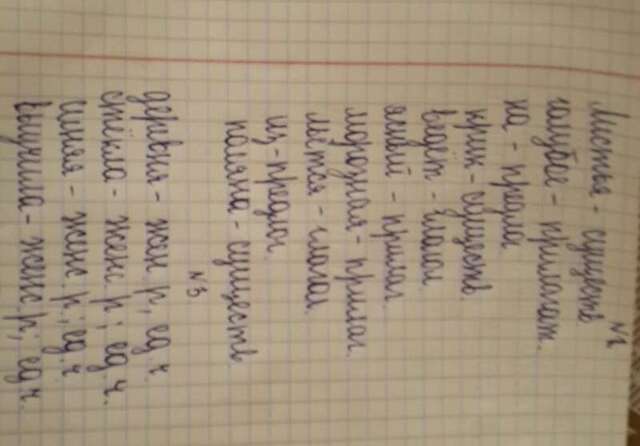 №2
Листья - существ
голубое - прилагат.
на - предлог
крик - существ
ведёт - глагол
живой - прилаг.
морозная - прилаг.
метёт - глагол
из - предлог
поляна - существ
№3
деревня - жен р, ед ч.
стекла - женс р; ед ч.
синяя - женс р; ед. ч.
выучила - женс р; ед ч.